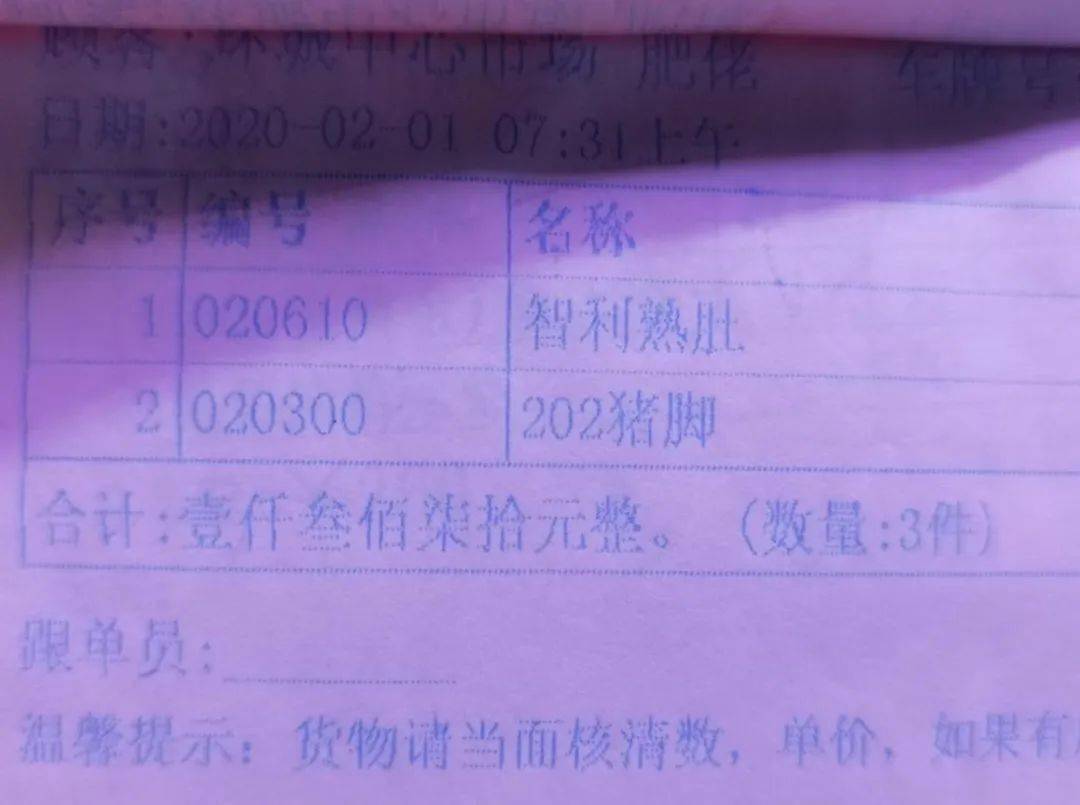 顾客:珠城中心市场 肥佬 车牌号
日期:2020-02-01 07:31上午
序号 编号 名称
1 020610 智利熟肚
2 020300 202猪脚
合计:壹仟叁佰柒拾元整。 (数量:3件)
跟单员:
温馨提示: 货物请当面核清数, 单价, 如果有